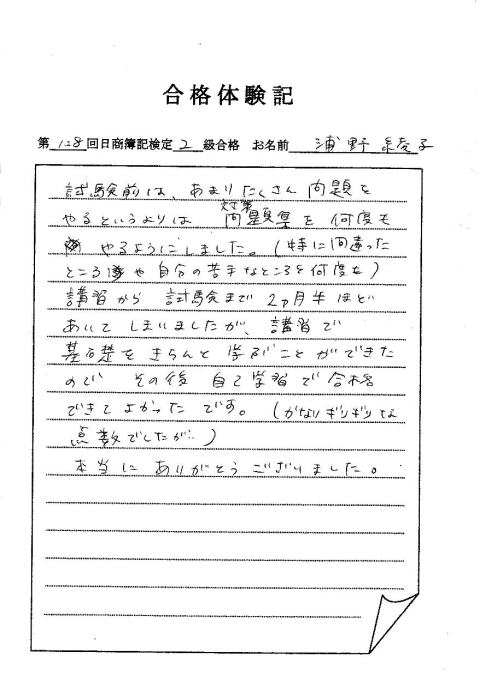 合格体験記
第128回日商簿記検定2級合格 お名前 浦野 綾子
試験前は、あまりたくさん問題を
やるというよりは対策問題集を何度も
やるようにしました。(特に間違った
ところや自分の苦手なところを何度も)
講習から試験まで2ヵ月半ほど
あいてしまいましたが、講習で
基礎をきちんと学ぶことができた
ので その後自己学習で合格
できてよかったです。(かなりギリギリな
点数でしたが…)
本当にありがとうございました。